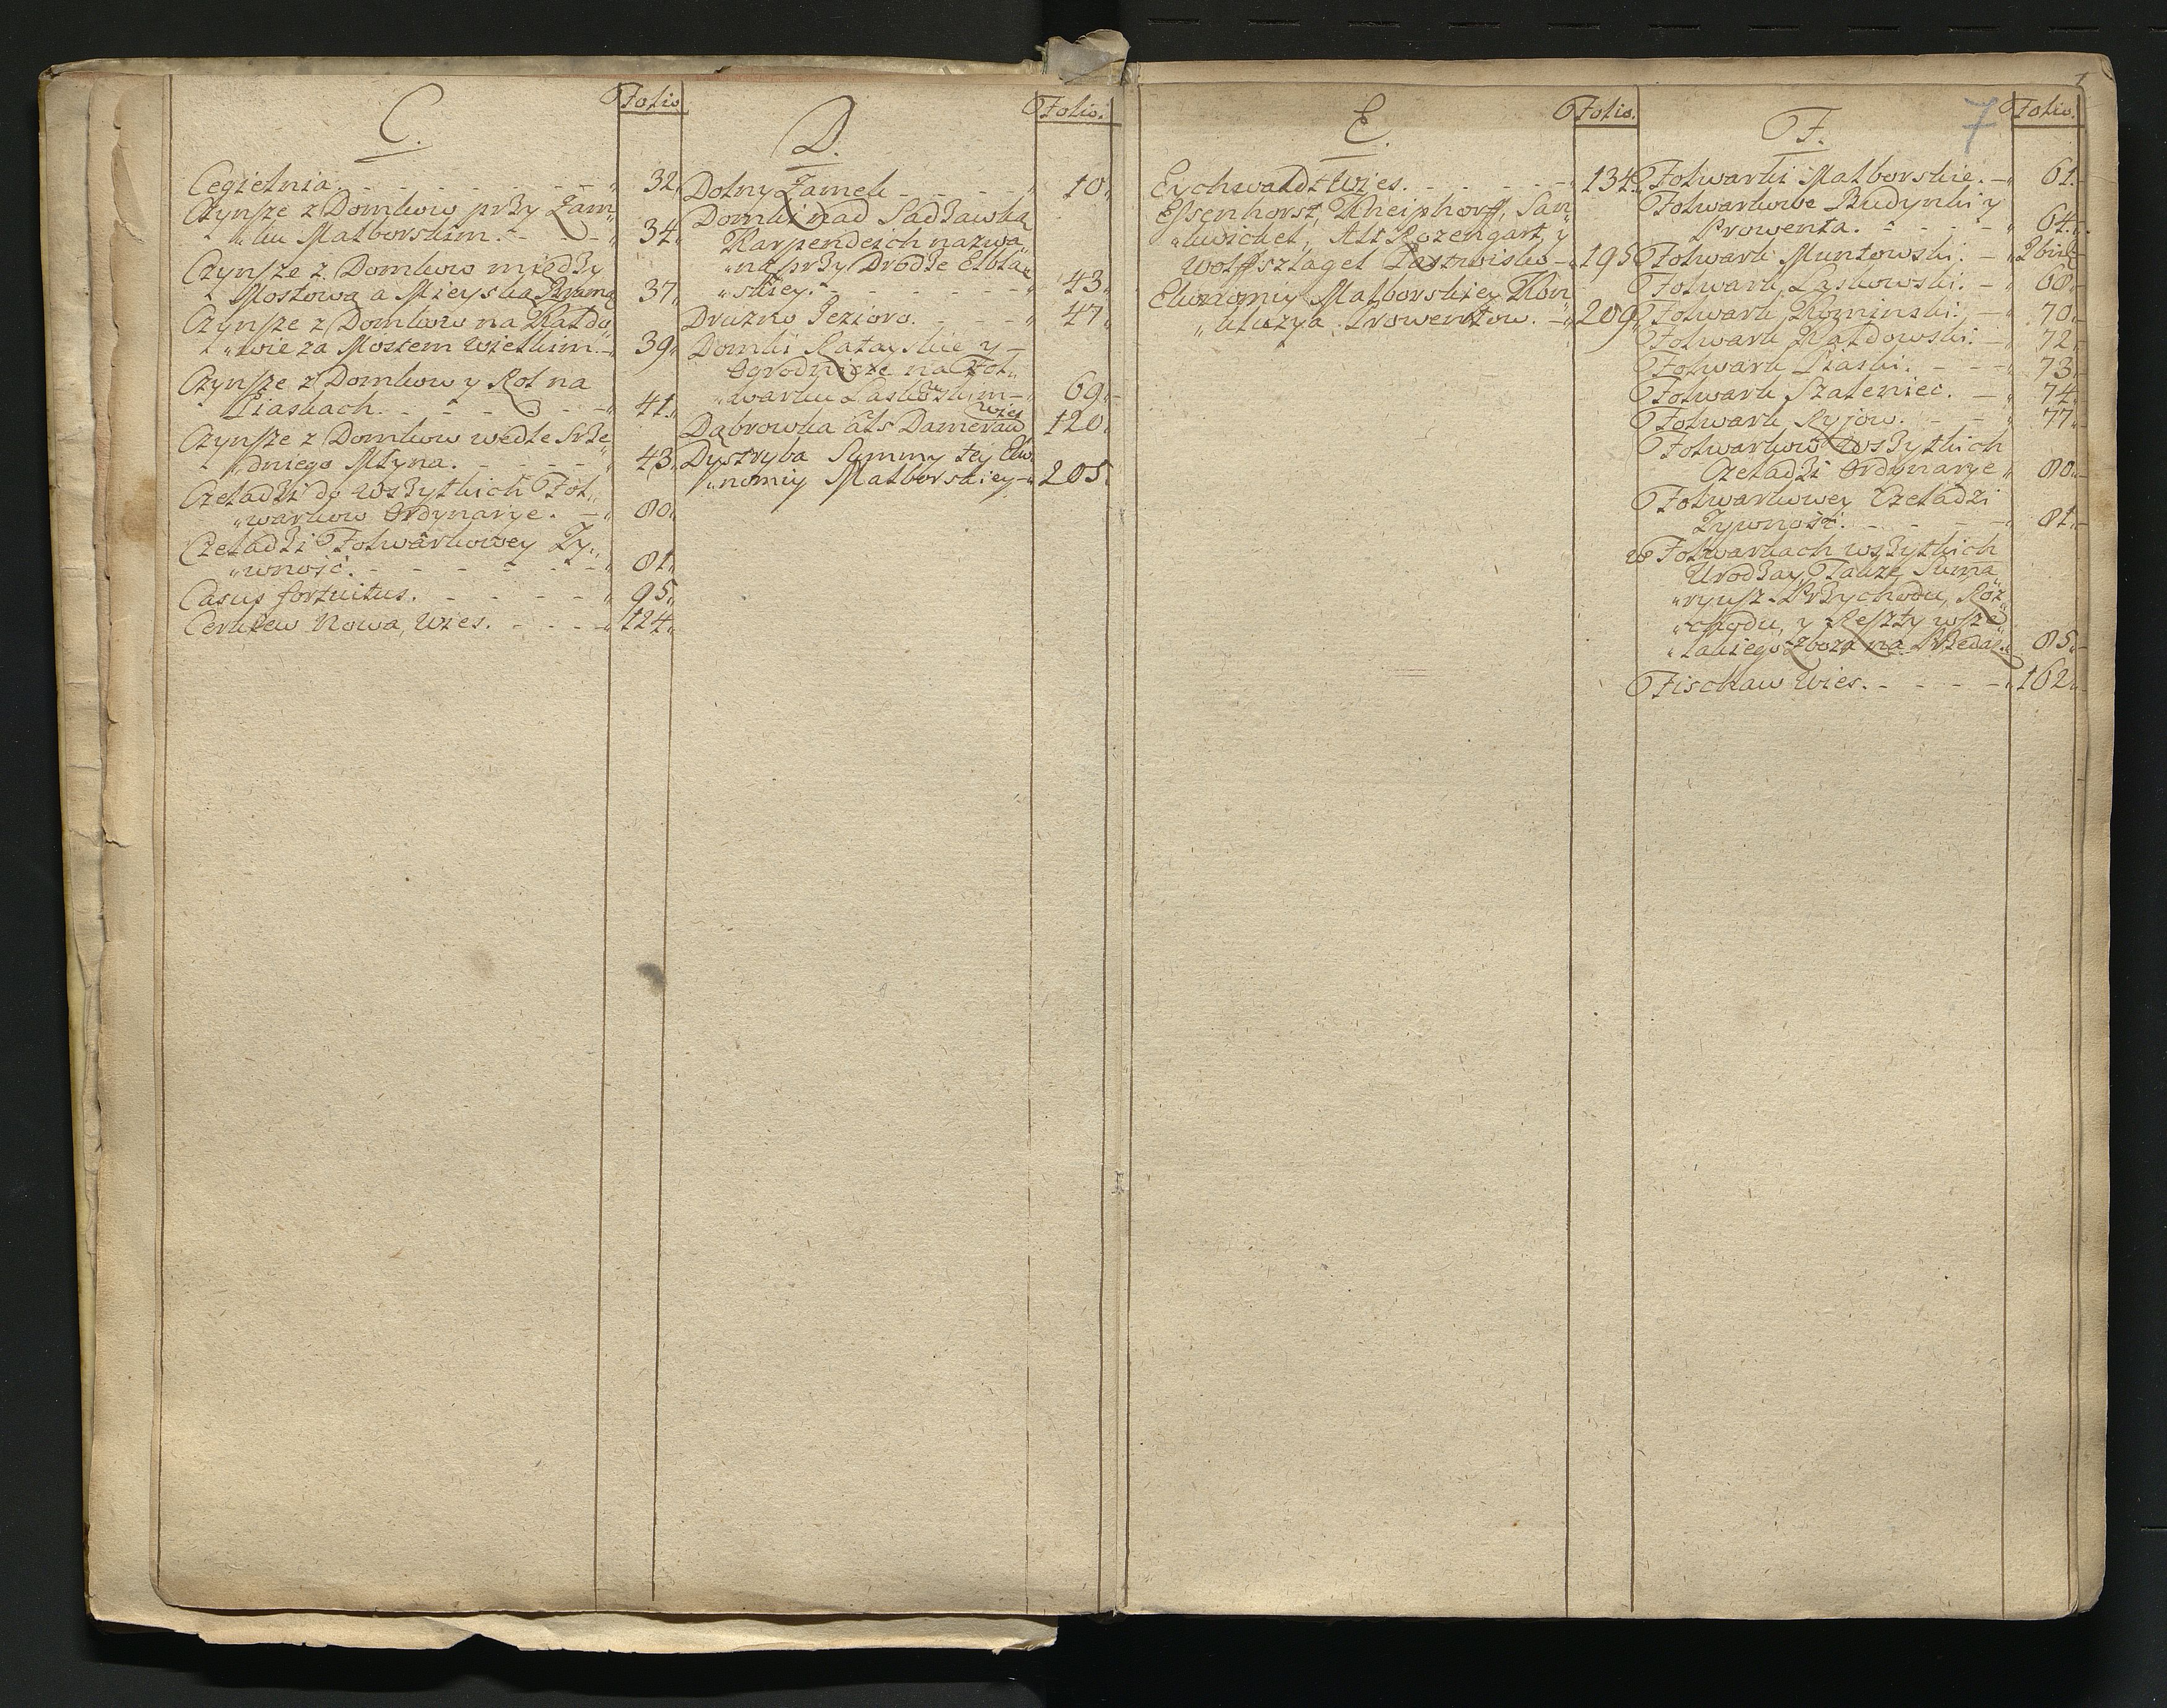 C.
Folio.
Cegielnia. 32.
Czynsze z Domkow przy Zam„
„ku Malborskim. 34.
Czynsze z Domkow między
Mostową a Mieyską Bramą 37.
Czynsze z Domkow na Kałdo„
„wie za Mostem Wielkim. 39.
Czynsze z Domkow y Rol na
Piaskach. 41.
Czynsze z Domkow wedle Srze„
„dniego Młyna. 43.
Czeladzi do wszytkich Fol„
„warkow Ordynarye. 80.
Czeladzi Folwarkowey Zy„
„wność. 81.
Casus fortuitus. 95.
Cerkiew Nowa, Wies. 124.
D.
Folio.
Dolny Zamek 10.
Domki nad Sadzawką
Karpendeich nazwa„
„ną przy Drodze Elblą„
„skiey. 43.
Druzno Jezioro. 47.
Domki Ratayskie y
Ogrodnicze na Fol„
„warku Laskowskim 69.
wies
Dąbrowka als Damerau 120.
Dystryba Summy tey Eko„
„nomiy Malborskiey 205.
E.
Folio.
Eychwaldt Wies. 134.
Essenhorst, Kneiphoff, San„
„kwichel, Alt Rozengart, y
Wolffszlagel Pastwisko 195
Ekonomiy Malborskiey Kon„
„kluzya Prowentow. 209.
7
F.
Folio.
Folwarki Malborskie. 61.
Folwarkowe Budynki y
Prowenta. 64.
Folwark Muntowski.
Folwark Laskowski. 68.
Folwark Kominski. 70.
Folwark Kałdowski. 72.
Folwark Piaski. 73.
Folwark Szaleniec. 74.
Folwark Ryjow. 77.
Folwarkow wszytkich
Czeladzi Ordynarye 80.
Folwarkowey Czeladzi
Zywność. 81.
w Folwarkach wszytkich
Urodzay, Także Summa„
„ryusz Przychodu, Roz„
„chodu, y Reszty wsze„
„lakiego Zboża na Przedaż. 85.
Fischaw Wies. 162.